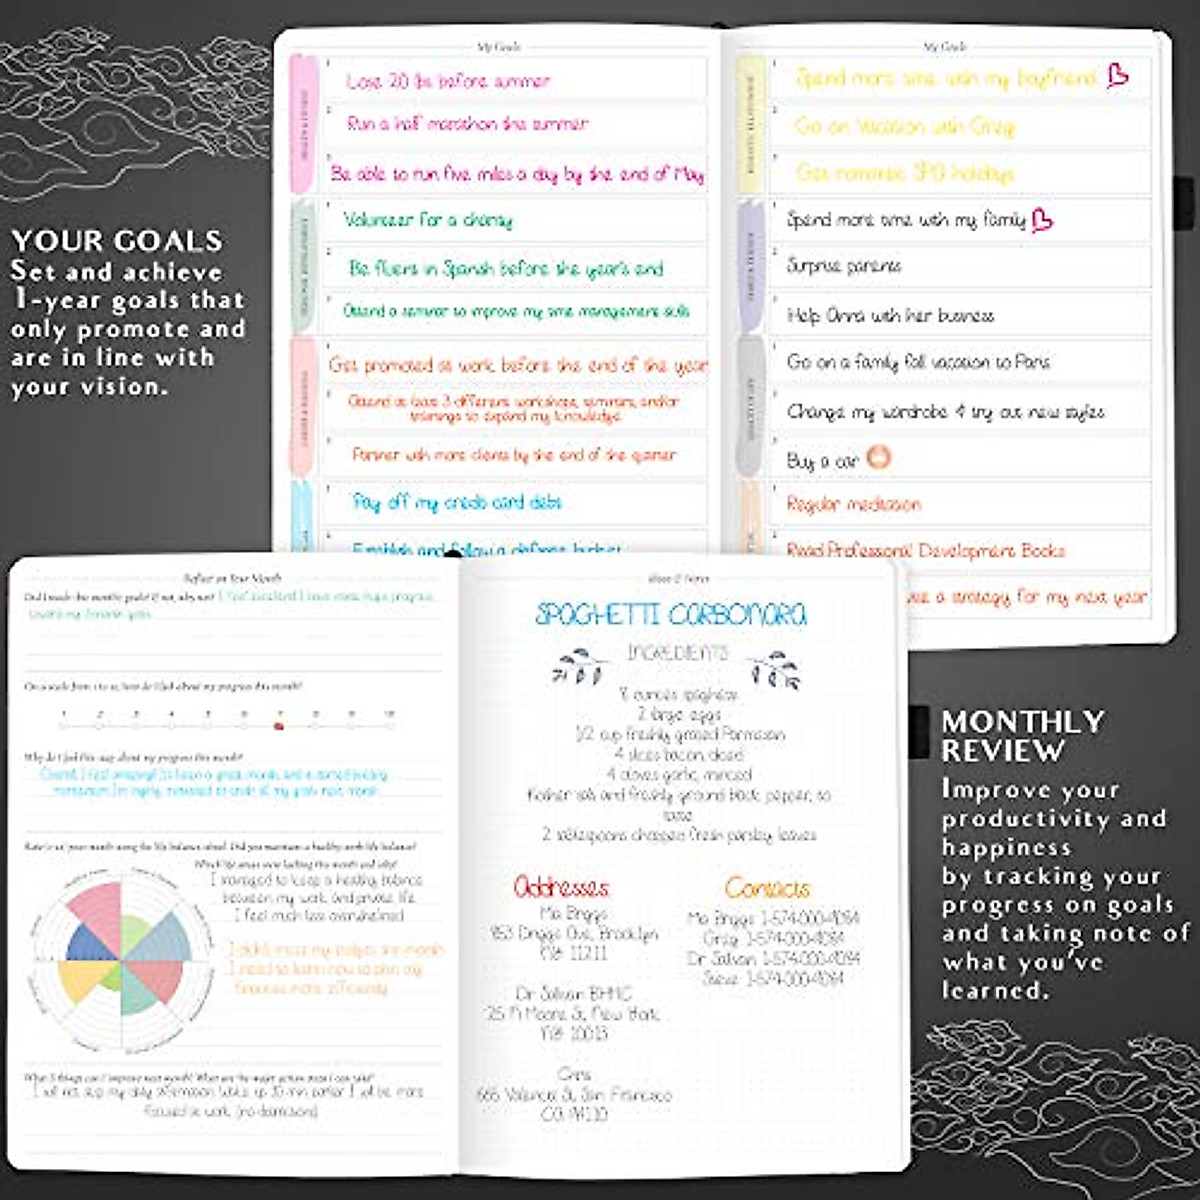 My Goals
Lose 20 lbs before summer
Run a half marathon the summer
Be able to run five miles a day by the end of May
Volunteer for a charity
Be fluent in Spanish before the year's end
Attend a seminar to improve my time management skills
Get promoted at work before the end of the year
Attend at least 3 different workshops, seminars, and/or
trainings to expand my knowledge
Partner with more clients by the end of the quarter
Pay off my credit card debt
Establish and follow a defense budget
My Goals
Spend more time with my boyfriend
Go on Vacation with Greg
Get romantic SPA holidays
Spend more time with my family
Surprise parents
Help Anna with her business
Go on a family fall vacation to Paris
Change my wardrobe & try out new styles
Buy a car
Regular meditation
Read Professional Development Books
a strategy for my next year
YOUR GOALS
Set and achieve
1-year goals that
only promote and
are in line with
your vision.
Reflect on Your Month
Did I reach this month's goals? If not, why not? I feel excellent! I have made huge progress
toward my 3-month goals
On a scale from 1 to 10, how do I feel about my progress this month?
1 2 3 4 5 6 7 8 9 10
Why do I feel this way about my progress this month?
Overall, I feel amazing! It's been a great month, and a
momentum. I'm highly motivated to crush all my goals next month
Rate 1-10 your month using the life balance wheel. Did you maintain a healthy work-life balance?
Which life areas were lacking this month and why?
I managed to keep a healthy balance
between my work and private life
I feel much less overwhelmed
I didn't meet my budget this month
I need to learn how to plan my
finances more efficiently
What 3 things can I improve next month? What are the major action steps I can take?
I will not skip my daily affirmation. Wake up 30 min earlier. I will be more
focused at work (no distractions)
Ideas & Notes
SPAGHETTI CARBONARA
INGREDIENTS
8 ounces spaghetti
2 large eggs
1/2 cup freshly grated Parmesan
4 slices bacon, diced
4 cloves garlic, minced
Kosher salt and freshly ground black pepper, to
taste
2 tablespoons chopped fresh parsley leaves
Addresses:
Ma Briggs
953 Driggs Ave, Brooklyn
NY 11211
Dr Salivan BHMC
25 N Moore St, New York
NY 10013
Chris
665 Valencia St, San Francisco
CA 94110
Contacts:
Ma Briggs 1-574-000-4084
Greg 1-574-000-4084
Dr Salivan 1-574-000-4084
Steve 1-574-000-4084
MONTHLY
REVIEW
Improve your
productivity and
happiness
by tracking your
progress on goals
and taking note of
what you've
learned.